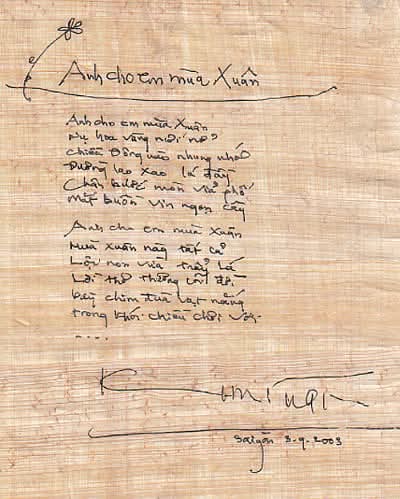 Anh cho em mùa Xuân
Anh cho em mùa Xuân
Nụ hoa vàng mới nở
chiều Đông nào nhung nhớ
Đường lao xao lá đầy
Chân bước mòn vỉa phố
Mắt buồn vin ngọn cây
Anh cho em mùa Xuân
Mùa xuân này tất cả
Lộc non vừa trẩy lá
Lời thơ thương cõi đời
Bầy chim đùa vạt nắng
trong khói chiều chơi vơi
....
Saigon 3.9.2003